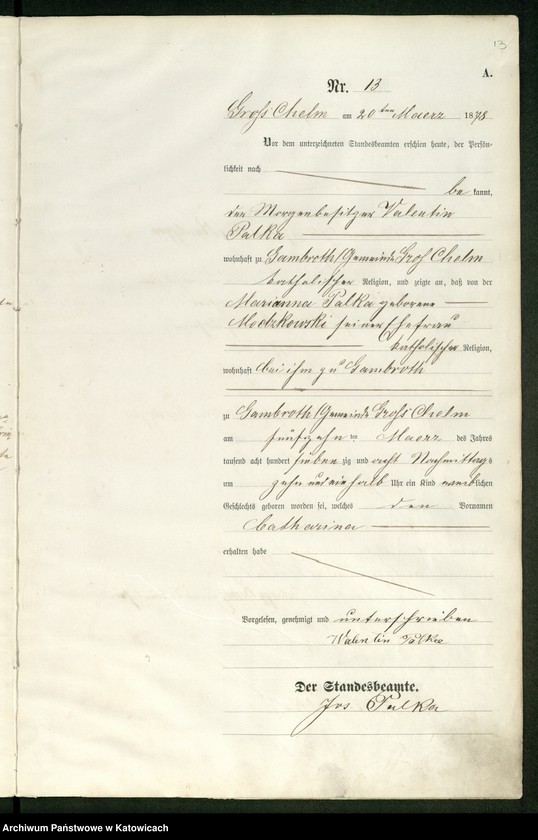 13
A.
Nr. 13
Gross Chelm am 20ten Maerz 1878
Vor dem unterzeichneten Standesbeamten erschien heute, der Persön-
lichkeit nach
be kannt,
der Morgenbesitzer Valentin
Palka
wohnhaft zu Gambroth/Gemeinde Gross Chelm
katholischer Religion, und zeigte an, daß von der
Marianna Palka geborene
Modzkowski seiner Ehefrau
katholischer Religion,
wohnhaft bei ihm zu Gambroth
zu Gambroth/Gemeinde Gross Chelm
am fünfzehn ten Maerz des Jahres
tausend acht hundert sieben zig und acht Nachmittags
um zehn und ein halb Uhr ein Kind weiblichen
Geschlechts geboren worden sei, welches den Vornamen
Catharina
erhalten habe
Vorgelesen, genehmigt und unterschrieben
Valentin Palka
Der Standesbeamte.
Jos Palka
Archiwum Państwowe w Katowicach